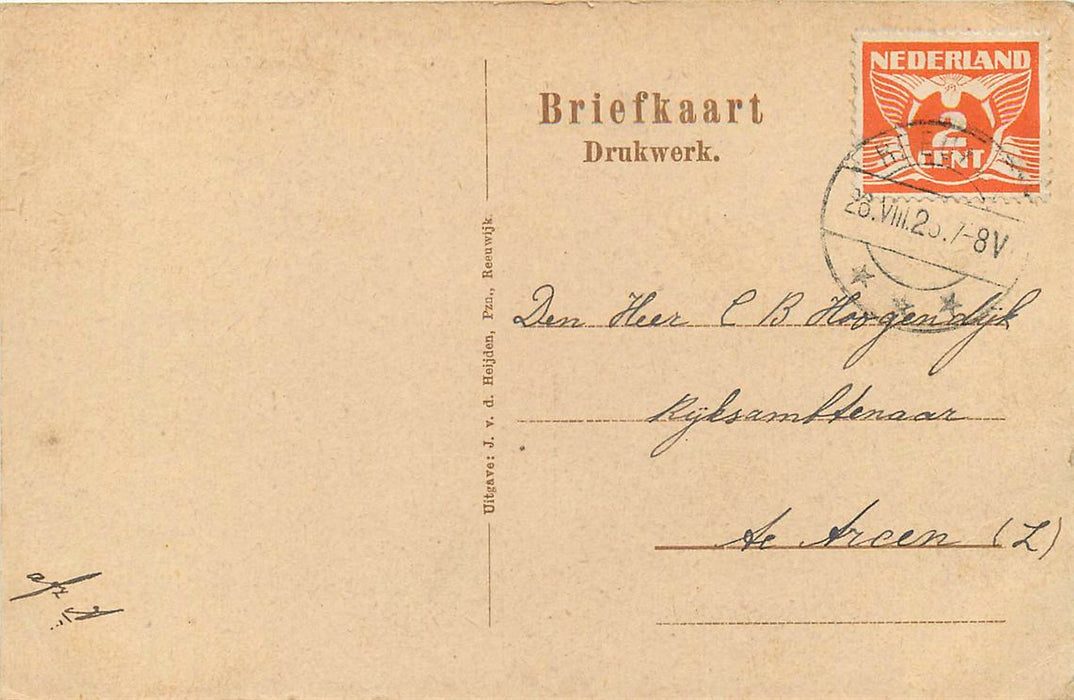 NEDERLAND
2
CENT
28.VIII.2 .7-8V
Briefkaart
Drukwerk.
Uitgave: J. v. d. Heijden, Pzn., Reeuwijk.
Den Heer C B Hoogendijk
Rijksambtenaar
te Arcen (L)